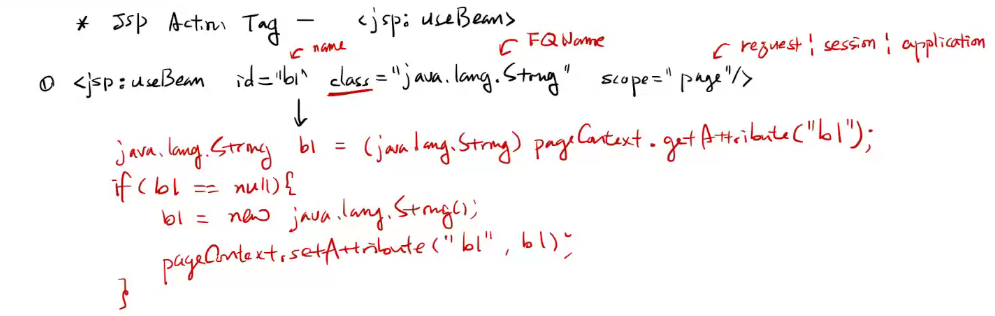 * Jsp Action Tag — <jsp: useBean>
name FQName request | session | application
① <jsp: useBean id="b1" class="java.lang.String" scope="page"/>
java.lang.String b1 = (java.lang.String) pageContext.getAttribute("b1");
if(b1 == null){
b1 = new java.lang.String();
pageContext.setAttribute("b1", b1);
}